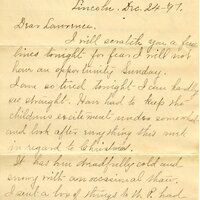 Lincoln. Dec. 24-97.
Dear Lawrence.
I will scratch you a few
lines tonight for fear I will not
have an opportunity Sunday.
I am so tired tonight I can hardly
see straight. Have had to keep the
children's excitement under somewhat
and look after everything this week
in regard to Christmas.
It has been dreadfully cold and
snowy with an occasional thaw.
I sent a box of things to had